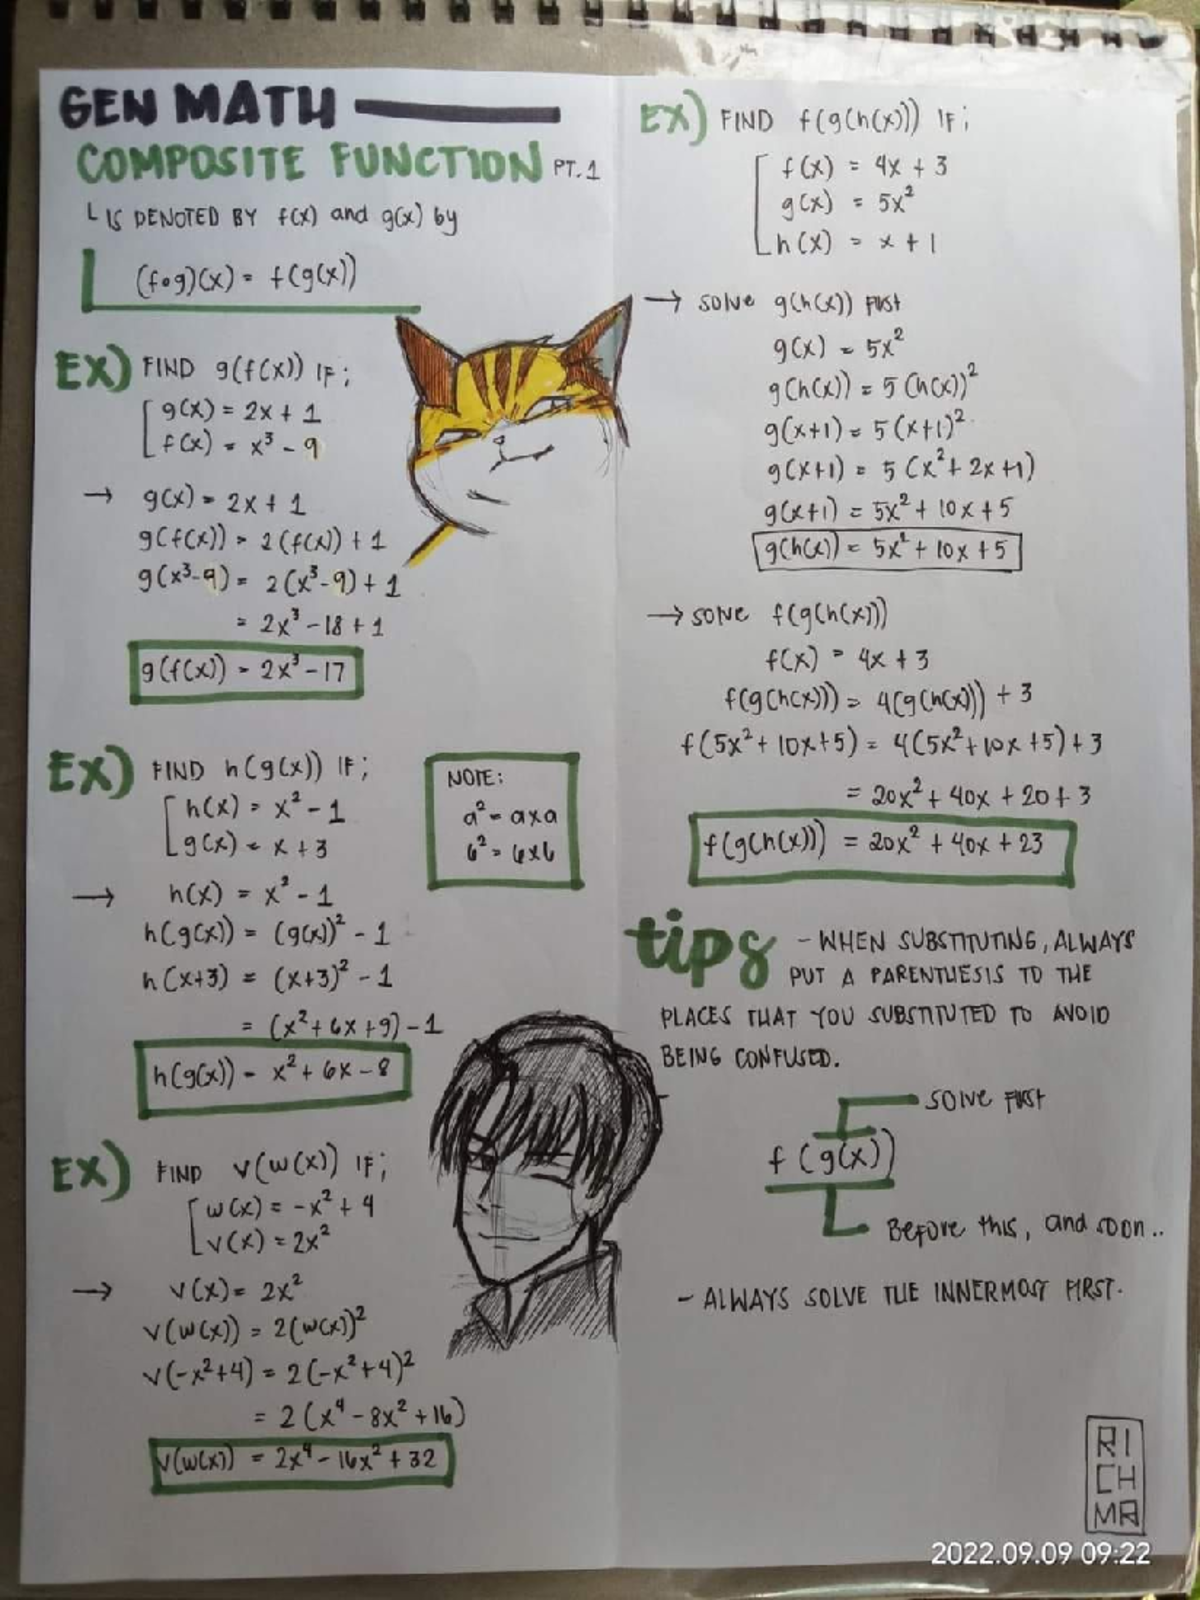 GEN MATH
COMPOSITE FUNCTION PT. 1
IS DENOTED BY f(x) and g(x) by
(f∘g)(x) = f(g(x))
EX) FIND g(f(x)) IF;
g(x) = 2x + 1
f(x) = x³ - 9
→ g(x) = 2x + 1
g(f(x)) = 2(f(x)) + 1
g(x³-9) = 2(x³-9) + 1
= 2x³ - 18 + 1
g(f(x)) = 2x³ - 17
EX) FIND h(g(x)) IF;
h(x) = x² - 1
g(x) = x + 3
→ h(x) = x² - 1
h(g(x)) = (g(x))² - 1
h(x+3) = (x+3)² - 1
= (x² + 6x + 9) - 1
h(g(x)) = x² + 6x - 8
NOTE:
a² = axa
6² = 6x6
EX) FIND v(w(x)) IF;
w(x) = -x² + 4
v(x) = 2x²
→ v(x) = 2x²
v(w(x)) = 2(w(x))²
v(-x²+4) = 2(-x²+4)²
= 2(x⁴ - 8x² + 16)
v(w(x)) = 2x⁴ - 16x² + 32
EX) FIND f(g(h(x)) IF;
f(x) = 4x + 3
g(x) = 5x²
h(x) = x + 1
→ SOLVE g(h(x)) FIRST
g(x) = 5x²
g(h(x)) = 5(h(x))²
g(x+1) = 5(x+1)²
g(x+1) = 5(x² + 2x + 1)
g(x+1) = 5x² + 10x + 5
g(h(x)) = 5x² + 10x + 5
→ SOLVE f(g(h(x)))
f(x) = 4x + 3
f(g(h(x))) = 4(g(h(x))) + 3
f(5x² + 10x + 5) = 4(5x² + 10x + 5) + 3
= 20x² + 40x + 20 + 3
f(g(h(x))) = 20x² + 40x + 23
tips - WHEN SUBSTITUTING, ALWAYS
PUT A PARENTHESIS TO THE
PLACES THAT YOU SUBSTITUTED TO AVOID
BEING CONFUSED.
SOLVE FIRST
f(g(x))
Before this, and soon..
- ALWAYS SOLVE THE INNERMOST FIRST.
RI
CH
MA
2022.09.09 09:22